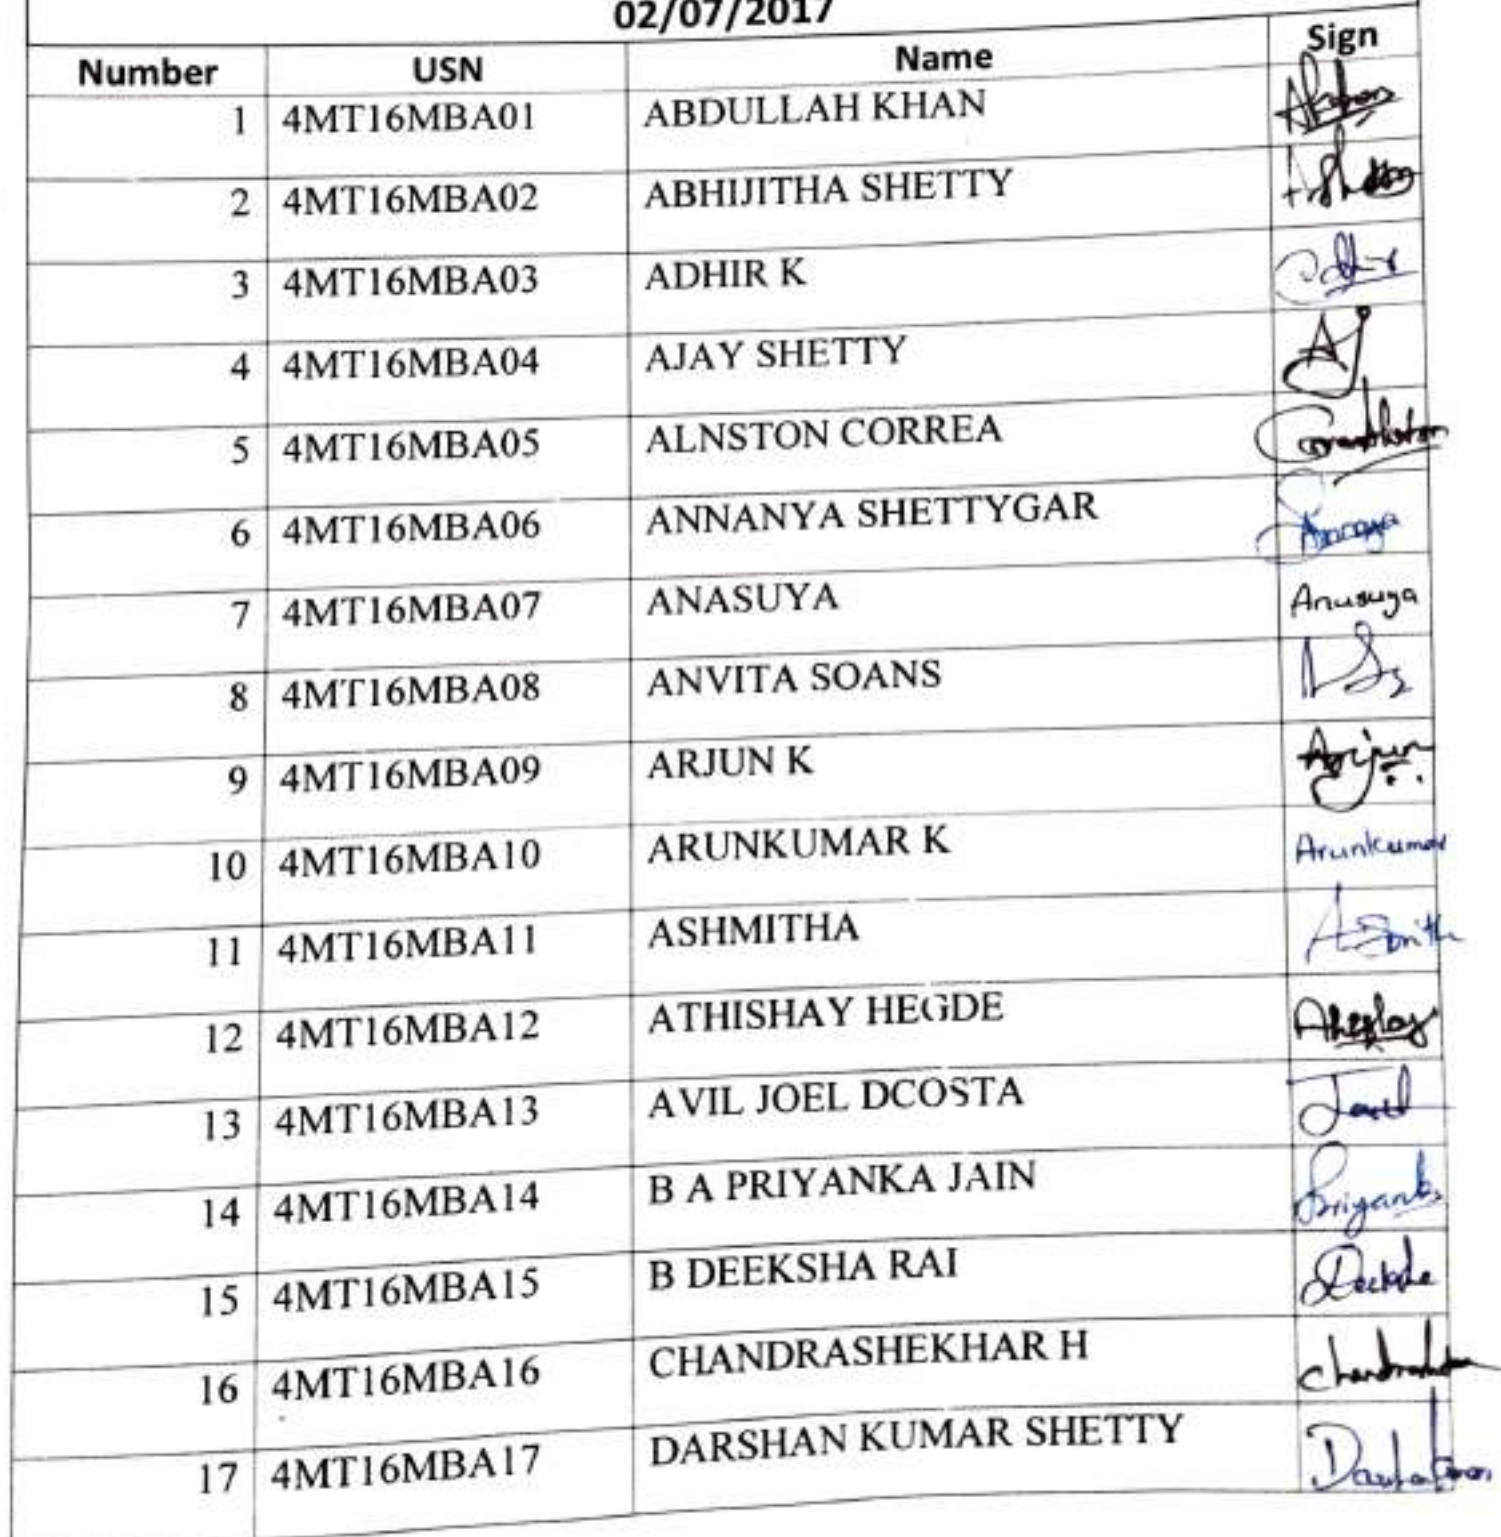 02/07/2017
Number USN Name Sign
1 4MT16MBA01 ABDULLAH KHAN
2 4MT16MBA02 ABHIJITHA SHETTY
3 4MT16MBA03 ADHIR K
4 4MT16MBA04 AJAY SHETTY AJ
5 4MT16MBA05 ALNSTON CORREA
6 4MT16MBA06 ANNANYA SHETTYGAR
7 4MT16MBA07 ANASUYA Anusuya
8 4MT16MBA08 ANVITA SOANS
9 4MT16MBA09 ARJUN K Arjun
10 4MT16MBA10 ARUNKUMAR K Arunkumar
11 4MT16MBA11 ASHMITHA
12 4MT16MBA12 ATHISHAY HEGDE
13 4MT16MBA13 AVIL JOEL DCOSTA
14 4MT16MBA14 B A PRIYANKA JAIN
15 4MT16MBA15 B DEEKSHA RAI
16 4MT16MBA16 CHANDRASHEKHAR H
17 4MT16MBA17 DARSHAN KUMAR SHETTY